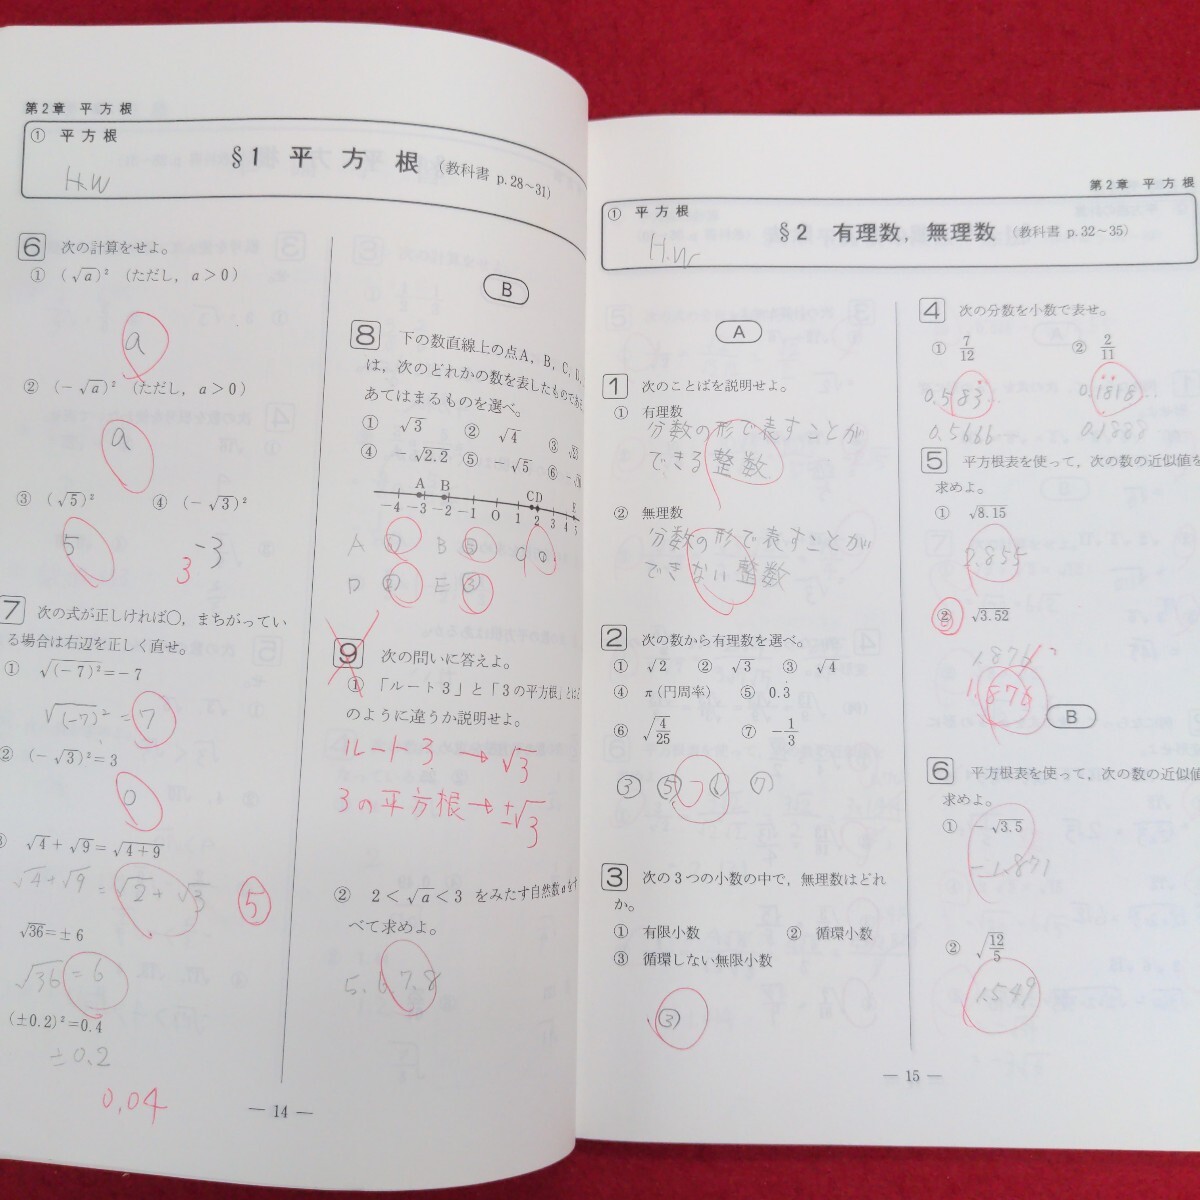 第2章 平方根
① 平方根
§1 平方根 (教科書 p.28〜31)
H.W
6 次の計算をせよ。
① (√a)² (ただし, a>0)
a
② (-√a)² (ただし, a>0)
a
③ (√5)² ④ (-√3)²
5 -3
3
7 次の式が正しければ○, まちがってい
る場合は右辺を正しく直せ。
① √(-7)²=-7
√(-7)² = 7
② (-√3)²=3
○
√4+√9=√4+9
√4+√9 = √2+√3 5
√36=±6
√36 = 6
(±0.2)²=0.4
±0.2
0.04
— 14 —
B
8 下の数直線上の点A, B, C, D,
は, 次のどれかの数を表したものである
あてはまるものを選べ。
① √3 ② √4 ③
④ -√2.2 ⑤ -√5 ⑥
A B C D E
-4 -3 -2 -1 O 1 2 3 4 5
A B C
D E
9 次の問いに答えよ。
① 「ルート3」と「3の平方根」とは
のように違うか説明せよ。
ルート3 → √3
3の平方根 → ±√3
② 2<√a<3 をみたす自然数aをす
べて求めよ。
5.6.7.8
第2章 平方根
① 平方根
§2 有理数, 無理数 (教科書 p.32〜35)
H.W
A
1 次のことばを説明せよ。
① 有理数
分数の形で表すことが
できる整数
② 無理数
分数の形で表すことが
できない整数
2 次の数から有理数を選べ。
① √2 ② √3 ③ √4
④ π(円周率) ⑤ 0.3̇
⑥ √4/25 ⑦ -1/3
③ ⑤ ⑥ ⑦
3 次の3つの小数の中で, 無理数はどれ
か。
① 有限小数 ② 循環小数
③ 循環しない無限小数
③
4 次の分数を小数で表せ。
① 7/12 ② 2/11
0.583… 0.1818…
0.5666… 0.1888
5 平方根表を使って, 次の数の近似値を
求めよ。
① √8.15
2.855
② √3.52
1.876
1.876
B
6 平方根表を使って, 次の数の近似値
求めよ。
① -√3.5
-1.871
② √12/5
1.549
— 15 —